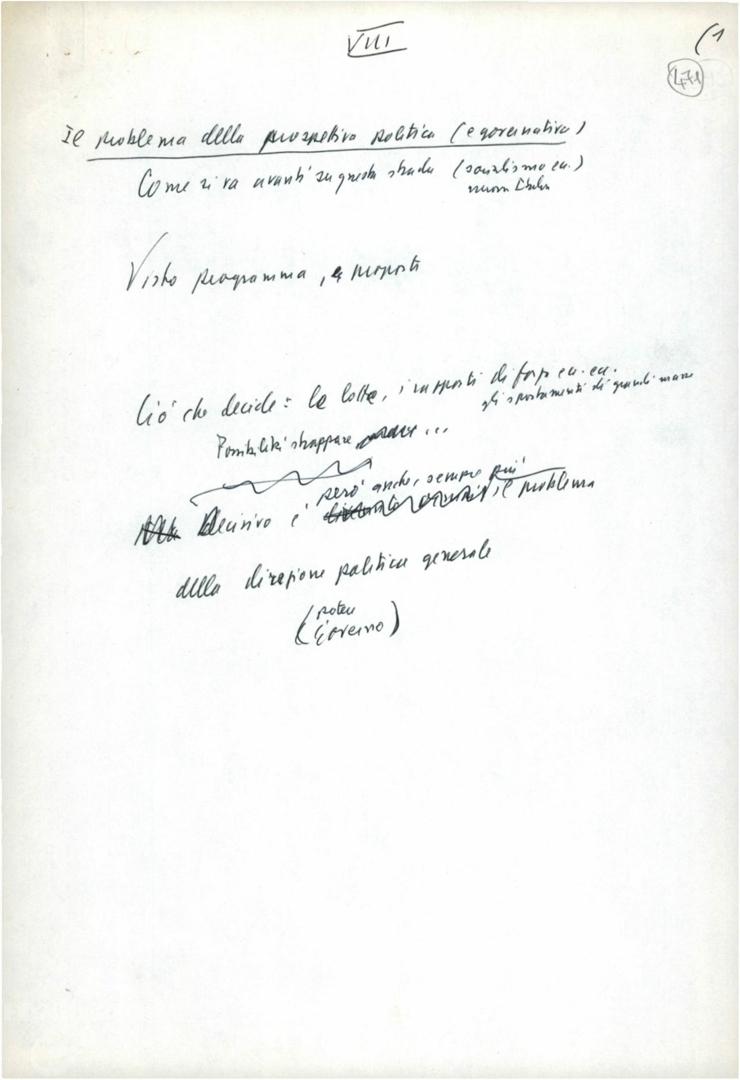 VIII
(1
471
Il problema della prospettiva politica (e governativa)
Come si va avanti su questa strada (socialismo ecc.)
nuova Italia
Visto programma, e proposte
Ciò che decide: la lotta, i rapporti di forza ecc. ecc.
gli spostamenti di grandi masse
Possibilità strappare ...
Decisivo è però anche, sempre più il problema
della direzione politica generale
(potere
Governo)